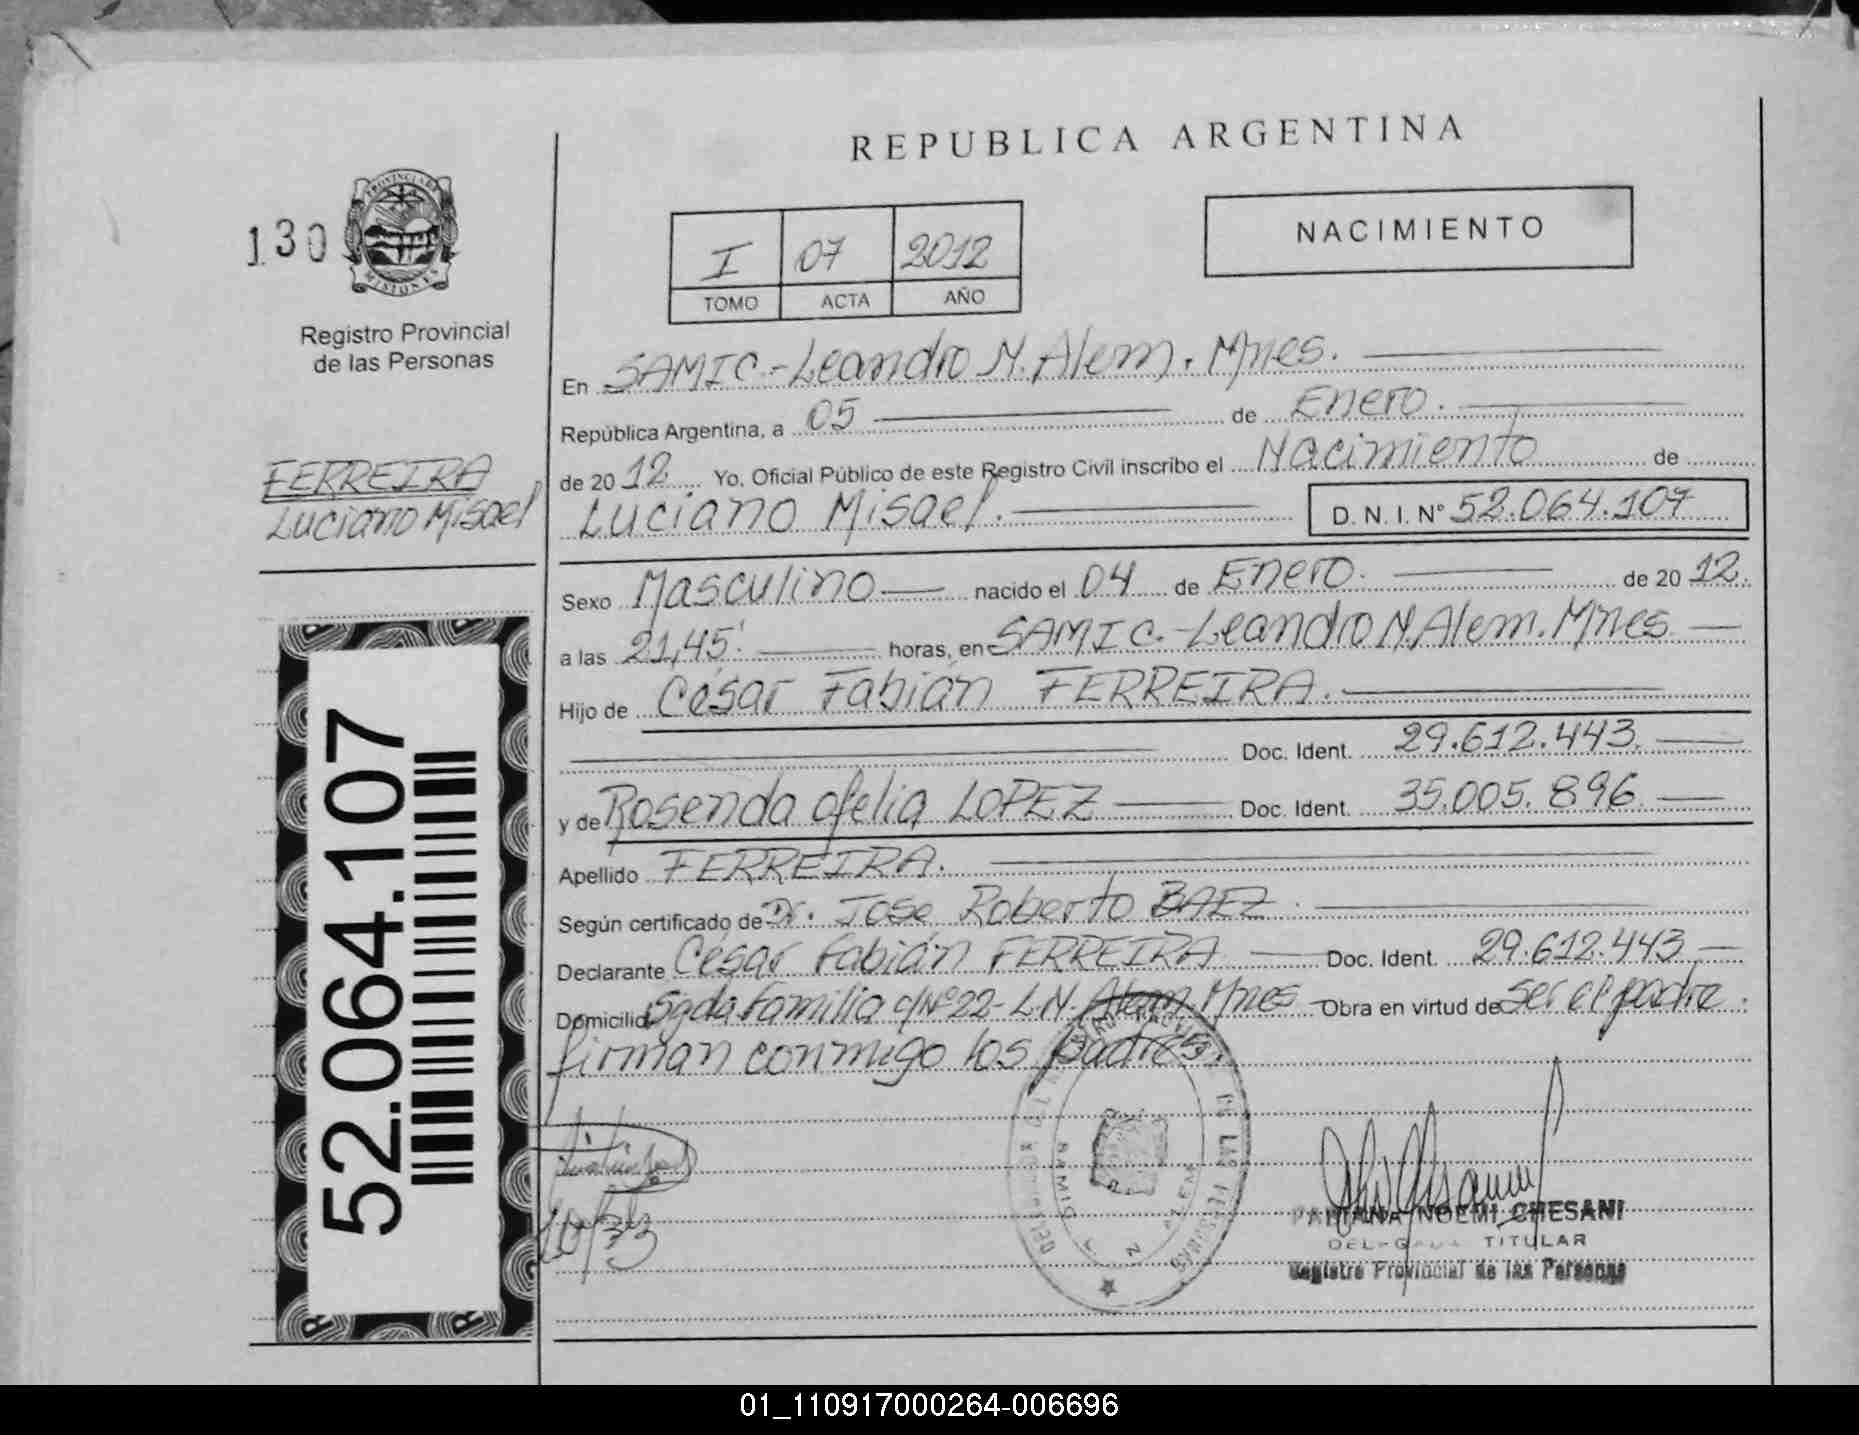 REPUBLICA ARGENTINA
130
PROVINCIA DE
MISIONES
Registro Provincial
de las Personas
FERREIRA
Luciano Misael
52.064.107
I 07 2012
TOMO ACTA AÑO
NACIMIENTO
En SAMIC.-Leandro N. Alem. Mnes.
República Argentina, a 05 de Enero.
de 2012. Yo, Oficial Público de este Registro Civil inscribo el Nacimiento de
Luciano Misael. D.N.I. Nº 52.064.107
Sexo Masculino nacido el 04 de Enero. de 2012.
a las 21,45' horas, en SAMIC.-Leandro N. Alem. Mnes.
Hijo de César Fabián FERREIRA.
Doc. Ident. 29.612.443.
y de Rosenda ofelia LOPEZ Doc. Ident. 35.005.896.
Apellido FERREIRA.
Según certificado de Dr. Jose Roberto BAEZ.
Declarante César Fabián FERREIRA Doc. Ident. 29.612.443
Domicilio Sgda Familia c/Nº 22- L.N. Alem. Mnes Obra en virtud de ser el padre.
firman conmigo los padres.
DE LAS PERSONAS
SAMIC L N ALEM
NOEMI CHESANI
TITULAR
Registro Provincial de las Personas
01_110917000264-006696